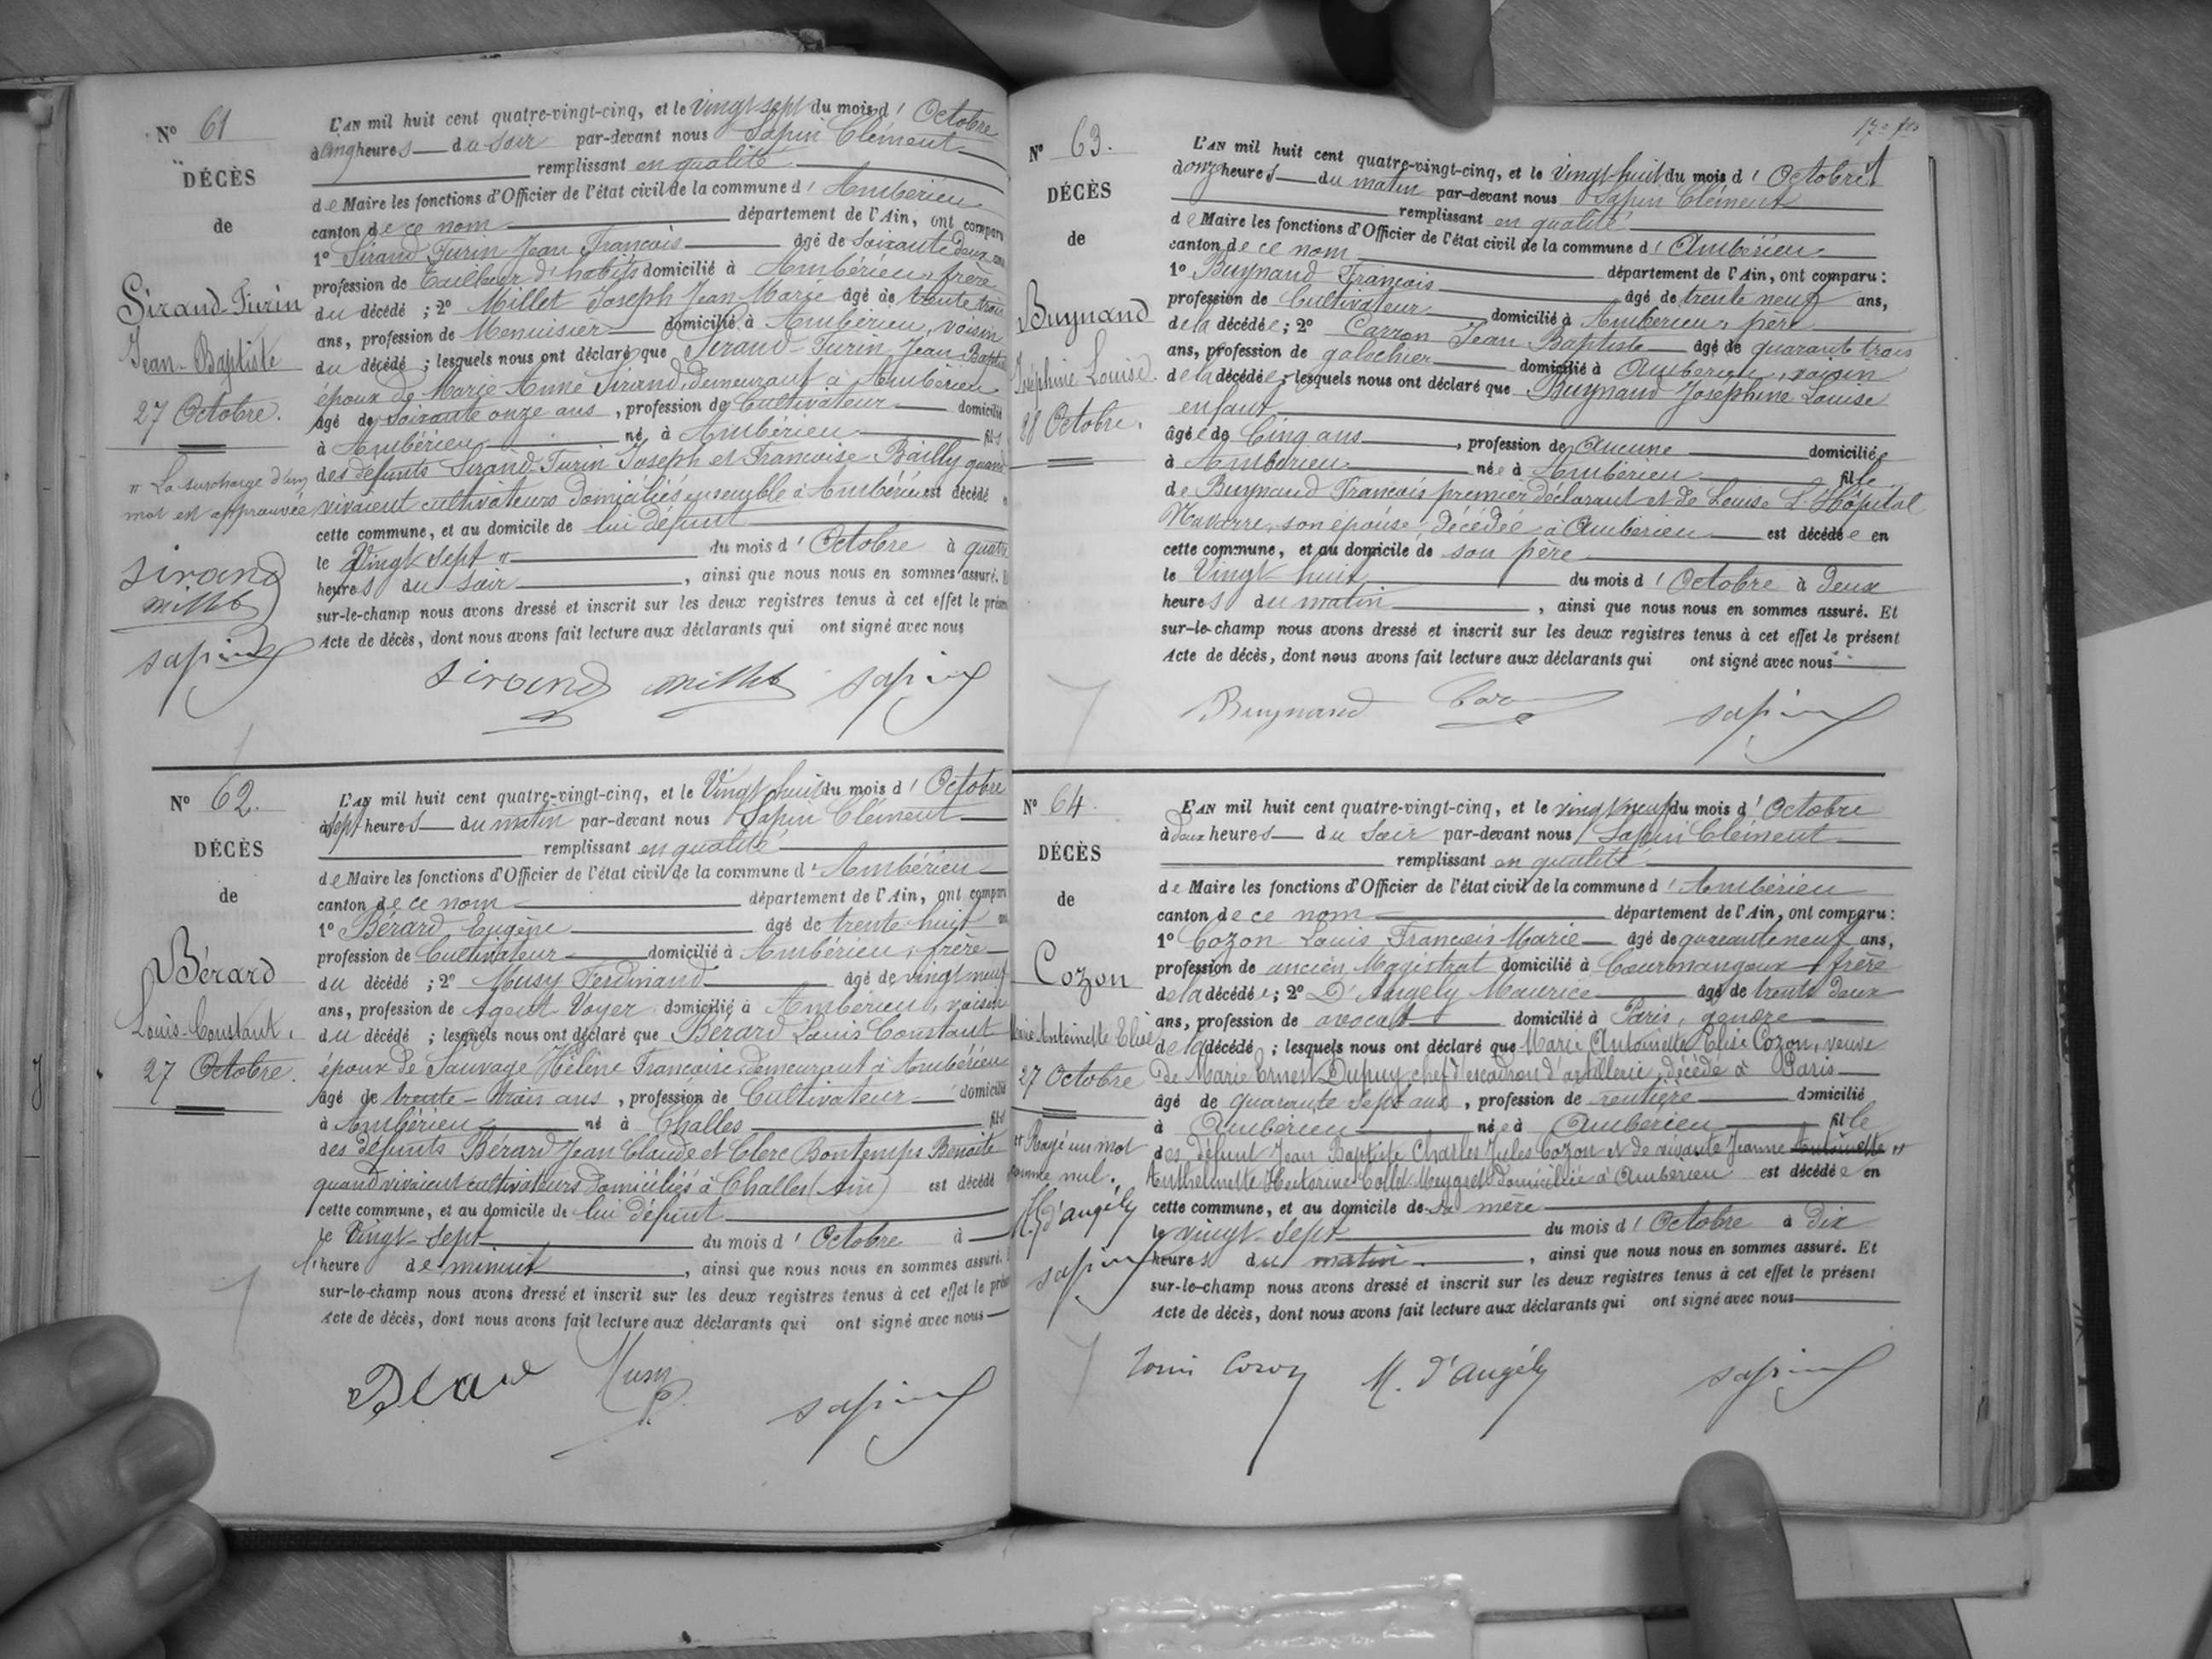 N° 61
DÉCÈS
de
Sirand-Turin
Jean-Baptiste
27 Octobre.
" La surcharge d'un
mot est approuvée
Sirand
Millet
Sapin
L'AN mil huit cent quatre-vingt-cinq, et le Vingt sept du mois d' Octobre
à Cinq heures du Soir par-devant nous Sapin Clément
remplissant en qualité
de Maire les fonctions d'Officier de l'état civil de la commune d' Ambérieu
canton de ce nom département de l'Ain, ont comparu
1° Sirand Turin Jean François âgé de Soixante deux ans
profession de Tailleur d'habits domicilié à Ambérieu, frère
du décédé ; 2° Millet Joseph Jean-Marie âgé de trente trois
ans, profession de Menuisier domicilié à Ambérieu, voisin
du décédé ; lesquels nous ont déclaré que Sirand-Turin Jean Baptiste
époux de Marie Anne Sirand, demeurant à Ambérieu
âgé de soixante onze ans, profession de Cultivateur domicilié
à Ambérieu né à Ambérieu fils
des défunts Sirand-Turin Joseph et Françoise Bailly quand
vivaient cultivateurs domiciliés ensemble à Ambérieu est décédé en
cette commune, et au domicile de lui défunt
le Vingt sept " du mois d' Octobre à quatre
heures du soir, ainsi que nous nous en sommes assuré. Et
sur-le-champ nous avons dressé et inscrit sur les deux registres tenus à cet effet le présent
Acte de décès, dont nous avons fait lecture aux déclarants qui ont signé avec nous
Sirand Millet Sapin
N° 62.
DÉCÈS
de
Bérard
Louis-Constant.
27 Octobre.
L'AN mil huit cent quatre-vingt-cinq, et le Vingt huit du mois d' Octobre
à Sept heures du matin par-devant nous Sapin Clément
remplissant en qualité
de Maire les fonctions d'Officier de l'état civil de la commune d' Ambérieu
canton de ce nom département de l'Ain, ont comparu
1° Bérard Eugène âgé de trente-huit ans
profession de Cultivateur domicilié à Ambérieu, frère
du décédé ; 2° Musy Ferdinand âgé de vingt neuf
ans, profession de Agent Voyer domicilié à Ambérieu, voisin
du décédé ; lesquels nous ont déclaré que Bérard Louis Constant
époux de Sauvage Hélène Françoise demeurant à Ambérieu
âgé de trente-trois ans, profession de Cultivateur domicilié
à Ambérieu né à Challes fils
des défunts Bérard Jean Claude et Clerc Bontemps Benoîte
quand vivaient cultivateurs domiciliés à Challes (Ain) est décédé
cette commune, et au domicile de lui défunt
le Vingt-sept du mois d' Octobre à
l'heure de minuit, ainsi que nous nous en sommes assuré.
sur-le-champ nous avons dressé et inscrit sur les deux registres tenus à cet effet le présent
Acte de décès, dont nous avons fait lecture aux déclarants qui ont signé avec nous
Musy Sapin
N° 63.
DÉCÈS
de
Buynand
Joséphine Louise.
28 Octobre.
L'AN mil huit cent quatre-vingt-cinq, et le Vingt-huit du mois d' Octobre
à onze heures du matin par-devant nous Sapin Clément
remplissant en qualité
de Maire les fonctions d'Officier de l'état civil de la commune d' Ambérieu
canton de ce nom département de l'Ain, ont comparu :
1° Buynand François âgé de trente neuf ans,
profession de Cultivateur domicilié à Ambérieu, père
de la décédée ; 2° Carron Jean Baptiste âgé de quarante trois
ans, profession de galochier domicilié à Ambérieu, voisin
de la décédée ; lesquels nous ont déclaré que Buynand Joséphine Louise
enfant
âgée de Cinq ans, profession de Aucune domiciliée
à Ambérieu née à Ambérieu fille
de Buynand François premier déclarant et de Louise L'Hôpital
Navarre, son épouse, décédée à Ambérieu est décédée en
cette commune, et au domicile de son père
le Vingt huit du mois d' Octobre à deux
heures du matin, ainsi que nous nous en sommes assuré. Et
sur-le-champ nous avons dressé et inscrit sur les deux registres tenus à cet effet le présent
Acte de décès, dont nous avons fait lecture aux déclarants qui ont signé avec nous
Buynand Sapin
N° 64.
DÉCÈS
de
Cozon
Marie Antoinette Elise
27 Octobre
" Rayé un mot
comme nul.
M. d'Angély
Sapin
L'AN mil huit cent quatre-vingt-cinq, et le vingt neuf du mois d' Octobre
à deux heures du Soir par-devant nous Sapin Clément
remplissant en qualité
de Maire les fonctions d'Officier de l'état civil de la commune d' Ambérieu
canton de ce nom département de l'Ain, ont comparu :
1° Cozon Louis François Marie âgé de quarante neuf ans,
profession de ancien Magistrat domicilié à Courmangoux frère
de la décédée ; 2° D'Angely Maurice âgé de trente deux
ans, profession de avocat domicilié à Paris, gendre
de la décédé ; lesquels nous ont déclaré que Marie Antoinette Elise Cozon, veuve
de Marie Ernest Dupuy chef d'escadron d'artillerie, décédé à Paris
âgé de quarante sept ans, profession de rentière domicilié
à Ambérieu née à Ambérieu fille
des défunt Jean Baptiste Charles Jules Cozon et de vivante Jeanne Antoinette "
domiciliée à Ambérieu est décédée en
cette commune, et au domicile de sa mère
le vingt-sept du mois d' Octobre à Dix
heures du matin, ainsi que nous nous en sommes assuré. Et
sur-le-champ nous avons dressé et inscrit sur les deux registres tenus à cet effet le présent
Acte de décès, dont nous avons fait lecture aux déclarants qui ont signé avec nous
Louis Cozon M. d'Angély Sapin